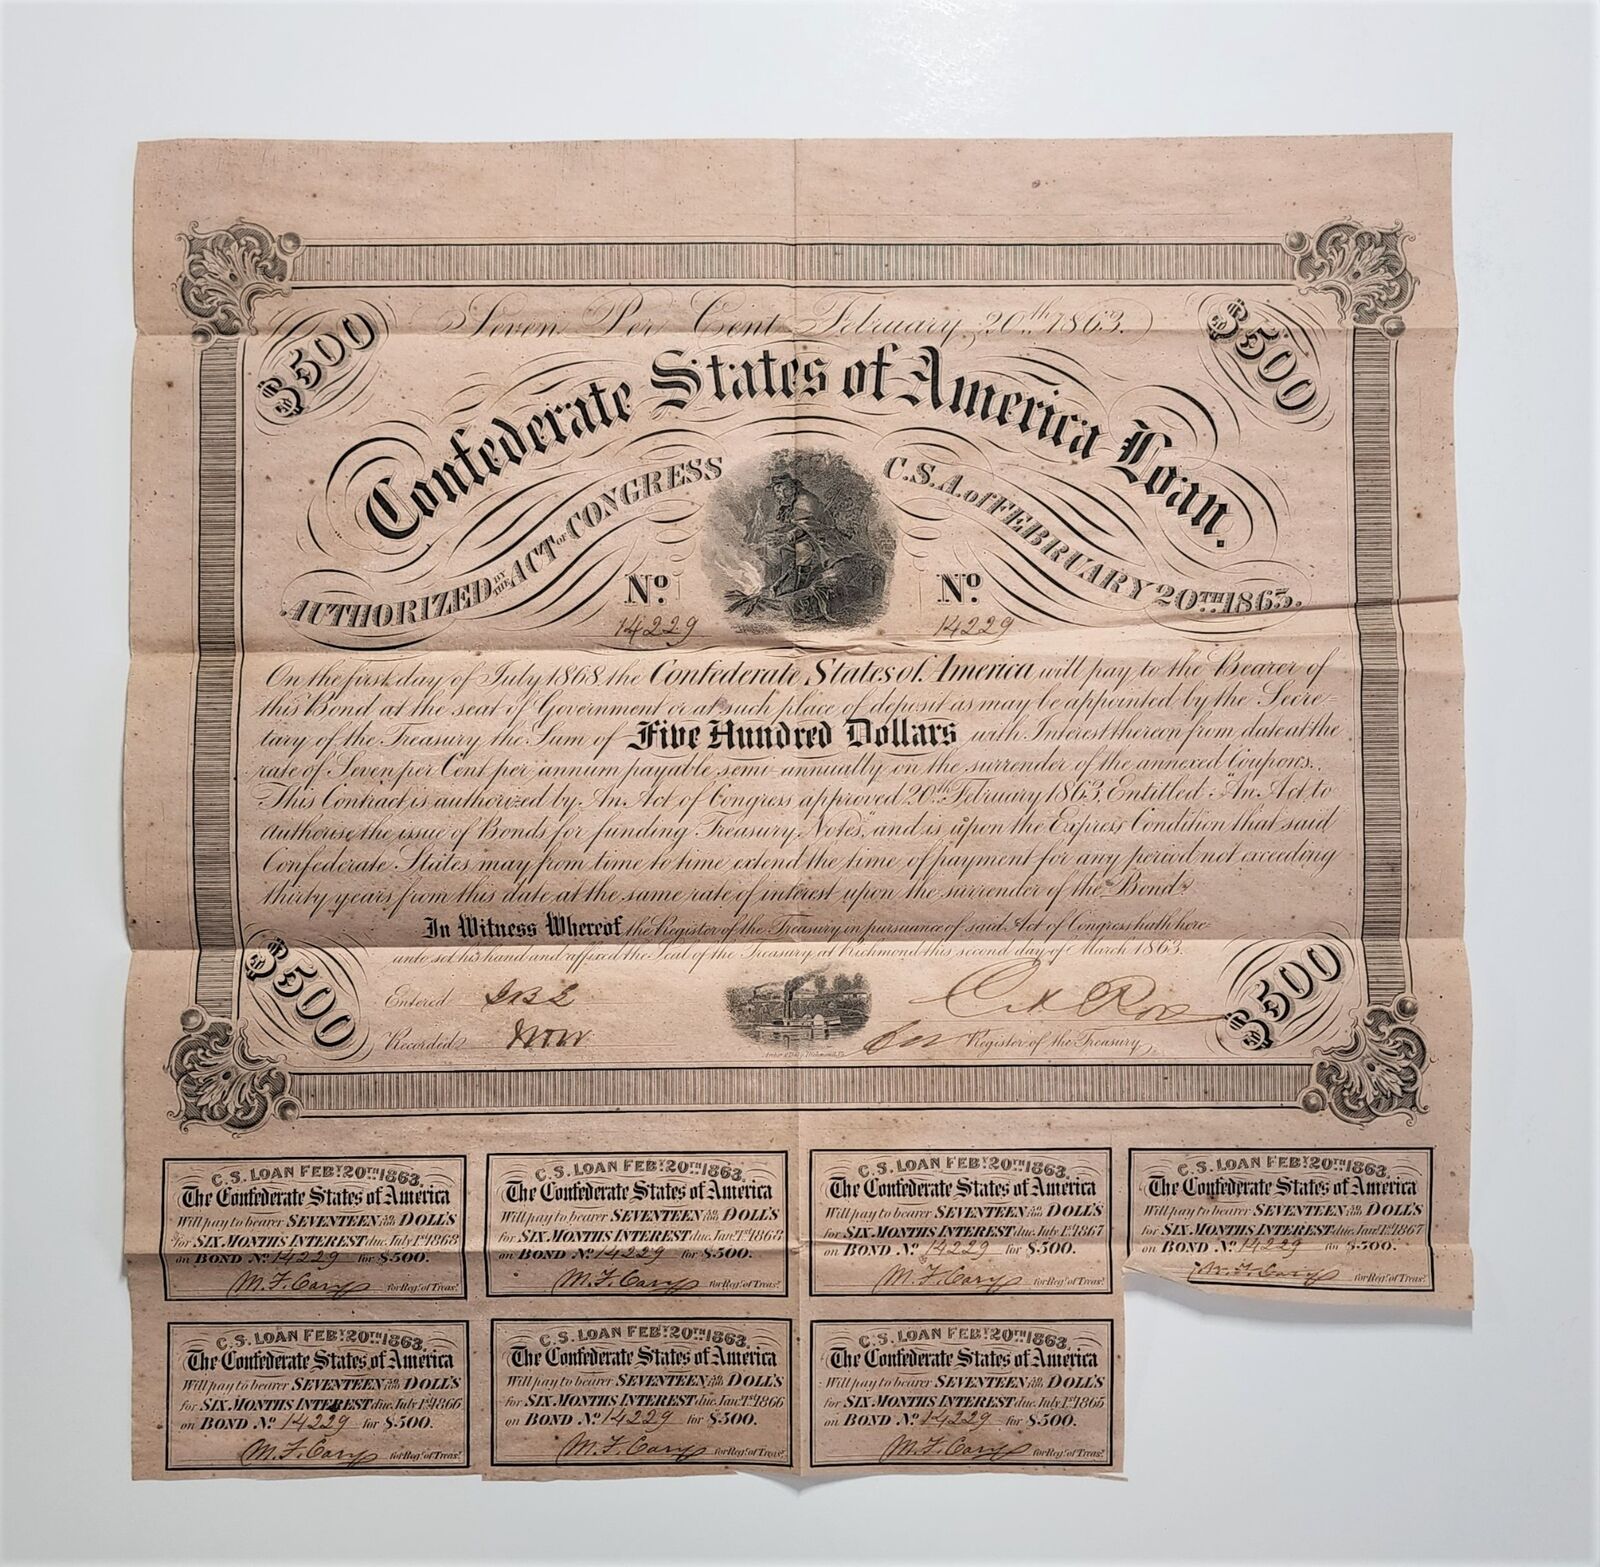 Seven Per Cent February 20th 1863.
$500
$500
Confederate States of America Loan.
AUTHORIZED BY THE ACT OF CONGRESS C.S.A. of FEBRUARY 20TH 1863.
No. No.
14229 14229
On the first day of July 1868, the Confederate States of America will pay to the Bearer of
this Bond at the seat of Government or at such place of deposit as may be appointed by the Secre-
tary of the Treasury the Sum of Five Hundred Dollars with Interest thereon from date at the
rate of Seven per Cent per annum payable semi-annually on the surrender of the annexed Coupons.
This Contract is authorized by An Act of Congress approved 20th February 1863, Entitled "An Act to
authorise the issue of Bonds for funding Treasury Notes," and is upon the Express Condition that said
Confederate States may from time to time extend the time of payment for any period not exceeding
thirty years from this date at the same rate of interest upon the surrender of the Bond
In Witness Whereof the Register of the Treasury in pursuance of said Act of Congress hath here-
unto set his hand and affixed the Seal of the Treasury at Richmond this second day of March 1863.
$500
$500
Entered
Recorded
Register of the Treasury
C.S. LOAN FEBY 20TH 1863.
The Confederate States of America
Will pay to bearer SEVENTEEN 50/100 DOLL'S
for SIX MONTHS INTEREST due July 1st 1868
on BOND No. 14229 for $500.
M. F. Cary for Regr. of Treasy.
C.S. LOAN FEBY 20TH 1863.
The Confederate States of America
Will pay to bearer SEVENTEEN 50/100 DOLL'S
for SIX MONTHS INTEREST due Jany 1st 1868
on BOND No. 14229 for $500.
M. F. Cary for Regr. of Treasy.
C.S. LOAN FEBY 20TH 1863.
The Confederate States of America
Will pay to bearer SEVENTEEN 50/100 DOLL'S
for SIX MONTHS INTEREST due July 1st 1867
on BOND No. 14229 for $500.
M. F. Cary for Regr. of Treasy.
C.S. LOAN FEBY 20TH 1863.
The Confederate States of America
Will pay to bearer SEVENTEEN 50/100 DOLL'S
for SIX MONTHS INTEREST due Jany 1st 1867
on BOND No. 14229 for $500.
M. F. Cary for Regr. of Treasy.
C.S. LOAN FEBY 20TH 1863.
The Confederate States of America
Will pay to bearer SEVENTEEN 50/100 DOLL'S
for SIX MONTHS INTEREST due July 1st 1866
on BOND No. 14229 for $500.
M. F. Cary for Regr. of Treasy.
C.S. LOAN FEBY 20TH 1863.
The Confederate States of America
Will pay to bearer SEVENTEEN 50/100 DOLL'S
for SIX MONTHS INTEREST due Jany 1st 1866
on BOND No. 14229 for $500.
M. F. Cary for Regr. of Treasy.
C.S. LOAN FEBY 20TH 1863.
The Confederate States of America
Will pay to bearer SEVENTEEN 50/100 DOLL'S
for SIX MONTHS INTEREST due July 1st 1865
on BOND No. 14229 for $500.
M. F. Cary for Regr. of Treasy.